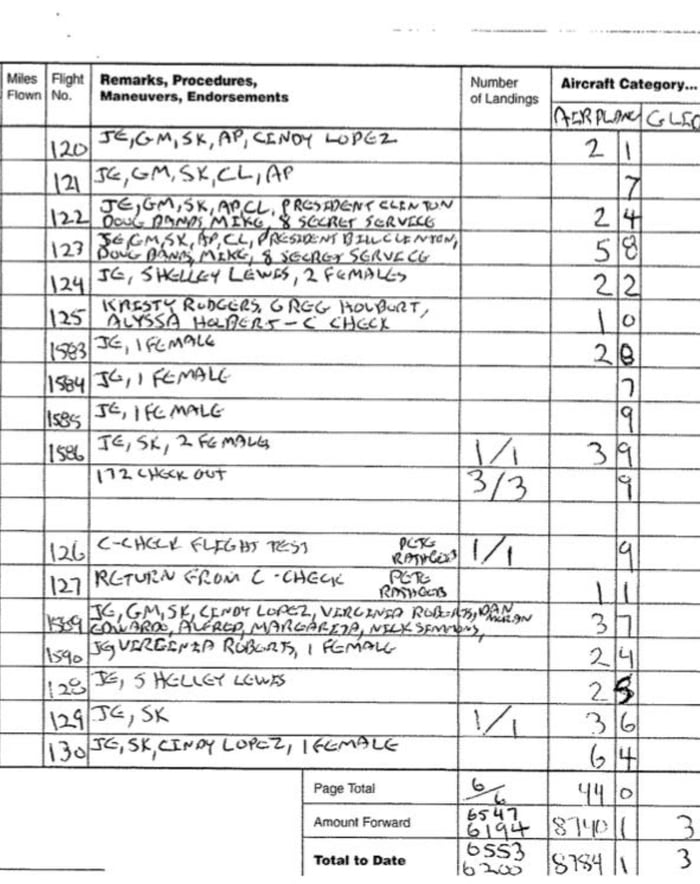 Miles Flown Flight No. Remarks, Procedures, Maneuvers, Endorsements Number of Landings Aircraft Category...
AIRPLANE GLID
120 JE, GM, SK, AP, CINDY LOPEZ 2 1
121 JE, GM, SK, CL, AP 7
122 JE, GM, SK, AP, CL, PRESIDENT CLINTON
DOUG BANDS, MIKE, 8 SECRET SERVICE 2 4
123 JE, GM, SK, AP, CL, PRESIDENT BILL CLINTON,
DOUG BANDS, MIKE, 8 SECRET SERVICE 5 8
124 JE, SHELLEY LEWIS, 2 FEMALES 2 2
125 KRISTY RODGERS, GREG HOLBURT,
ALYSSA HOLBERT - C CHECK 1 0
1583 JE, 1 FEMALE 2 8
1584 JE, 1 FEMALE 7
1585 JE, 1 FEMALE 9
1586 JE, SK, 2 FEMALES 1/1 3 9
172 CHECK OUT 3/3 9
126 C-CHECK FLIGHT TEST PETE 1/1 9
127 RETURN FROM C-CHECK PETE 1 1
1589 JE, GM, SK, CINDY LOPEZ, VIRGINIA ROBERTS,
EDWARDO, ALFRED, MARGARITA, NICK SIMMONS, 3 7
1590 JE, VIRGINIA ROBERTS, 1 FEMALE 2 4
128 JE, SHELLEY LEWIS 2
129 JE, SK 1/1 3 6
130 JE, SK, CINDY LOPEZ, 1 FEMALE 6 4
Page Total 6/6 44 0
Amount Forward 6547 6194 8740 1 3
Total to Date 6553 6200 8784 1 3